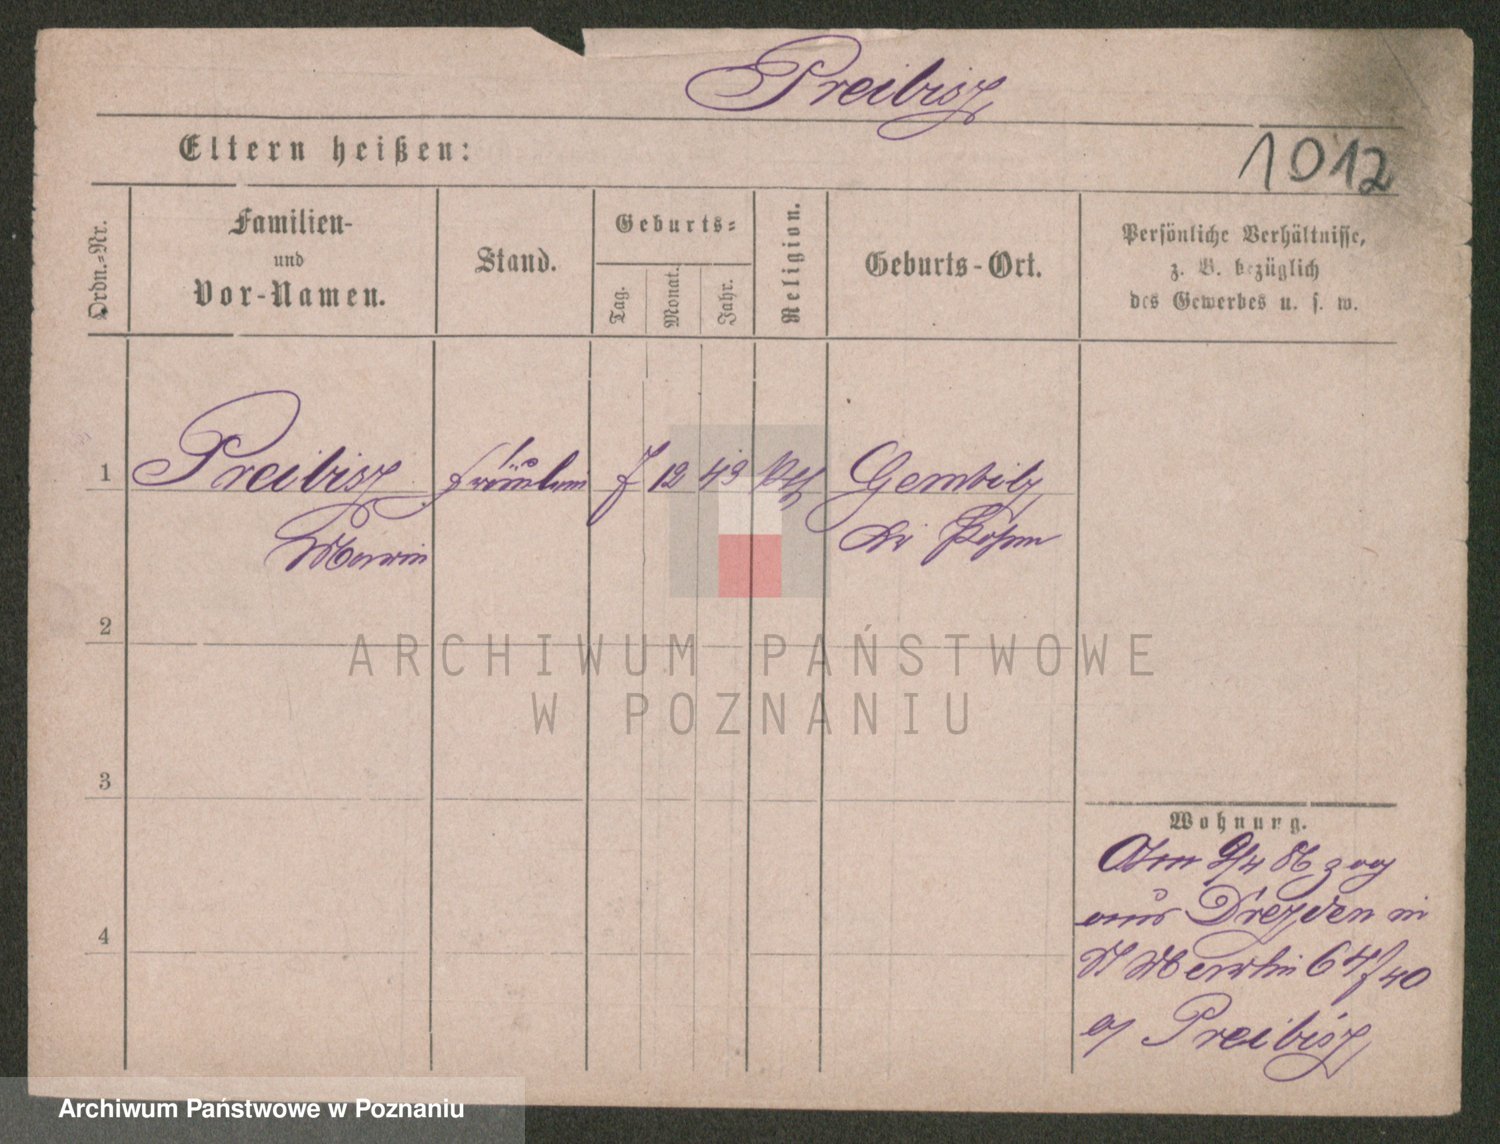 Preibisz
1012
Eltern heißen:
Ordn.-Nr.
Familien-
und
Vor-Namen.
Stand.
Geburts-
Tag.
Monat.
Jahr.
Religion.
Geburts-Ort.
Persönliche Verhältnisse,
z. B. bezüglich
des Gewerbes u. s. w.
1
Preibisz
Fräulein
7 12 49
Gembitz
Kr Posen
2
3
4
Wohnung.
Am 9/4 86 zog
aus Drezden in
St Martin 64/40
Preibisz
ARCHIWUM PAŃSTWOWE
W POZNANIU
Archiwum Państwowe w Poznaniu